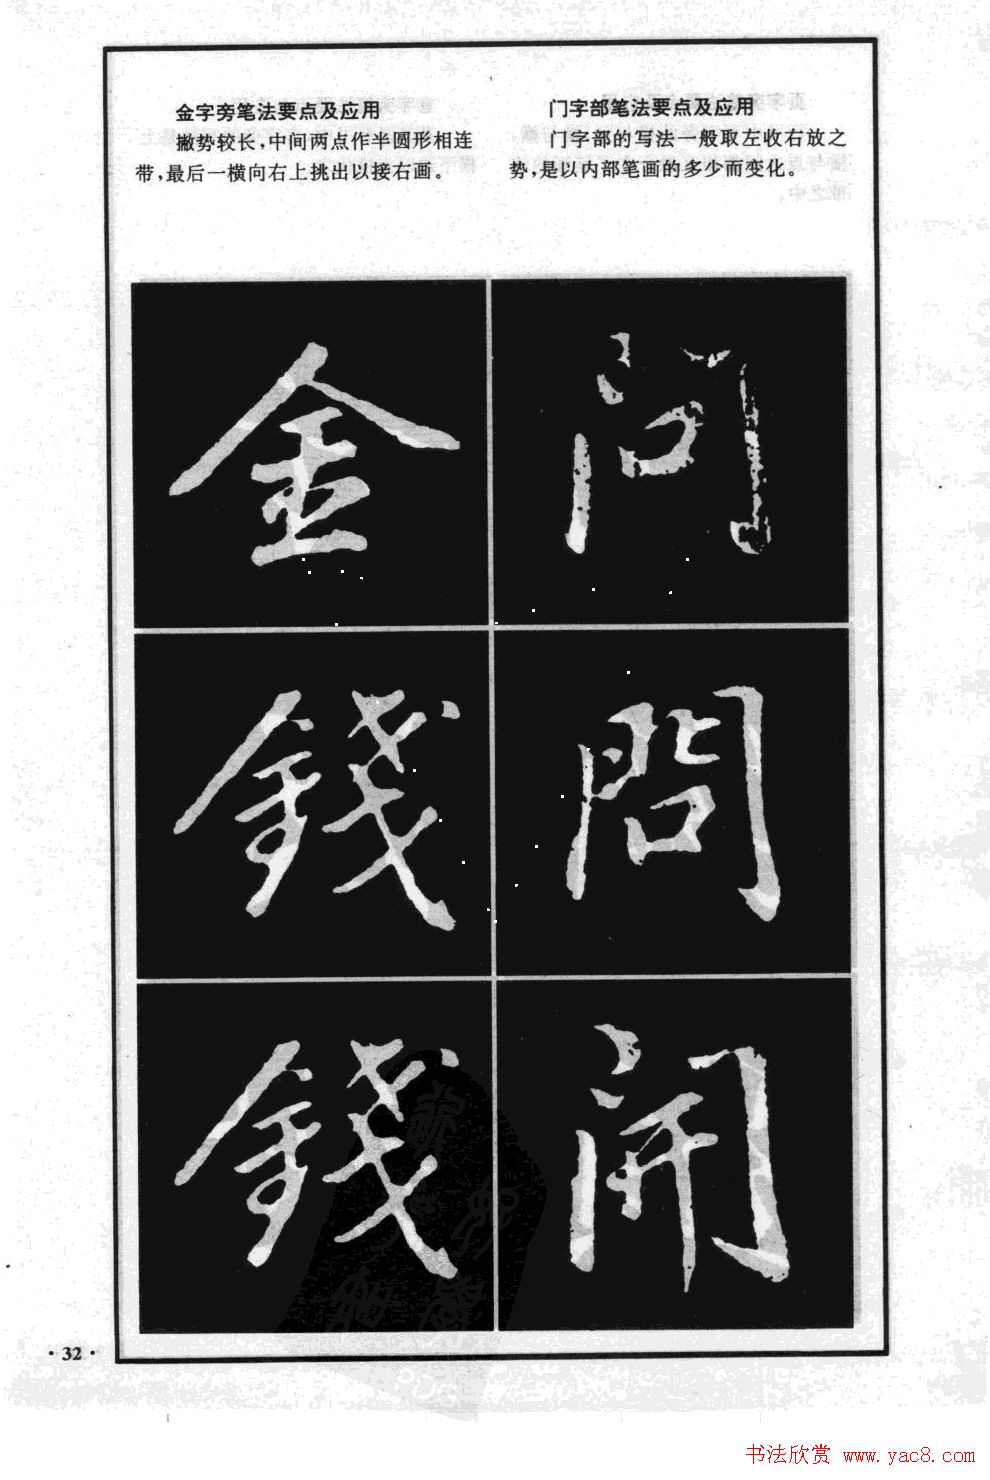 金字旁笔法要点及应用
撇势较长,中间两点作半圆形相连
带,最后一横向右上挑出以接右画。
门字部笔法要点及应用
门字部的写法一般取左收右放之
势,是以内部笔画的多少而变化。
金
錢
錢
問
開
·32·
书法欣赏 www.yac8.com